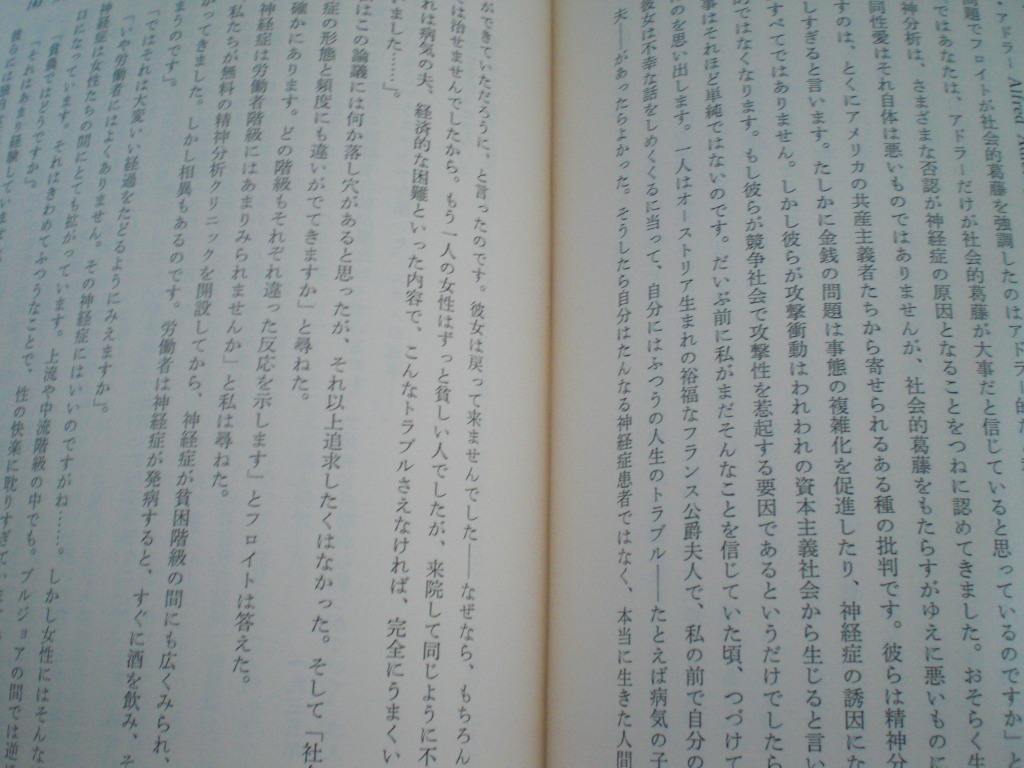 ・アドラー Alfred
問題でフロイトが社会的葛藤を強調したのはアドラー的だ
ではあなたは、アドラーだけが社会的葛藤が大事だと信じていると思っているのですか」と
神分析は、さまざまな否認が神経症の原因となることをつねに認めてきました。おそらく生
同性愛はそれ自体は悪いものではありませんが、社会的葛藤をもたらすがゆえに悪いものに
すのは、とくにアメリカの共産主義者たちから寄せられるある種の批判です。彼らは精神分
しすぎると言います。たしかに金銭の問題は事態の複雑化を促進したり、神経症の誘因にな
すべてではありません。しかし彼らが攻撃衝動はわれわれの資本主義社会から生じると言い
的ではなくなります。もし彼らが競争社会で攻撃性を惹起する要因であるというだけでしたら
事はそれほど単純ではないのです。だいぶ前に私がまだそんなことを信じていた頃、つづけて
のを思い出します。一人はオーストリア生まれの裕福なフランス公爵夫人で、私の前で自分の
彼女は不幸な話をしめくくるに当って、自分にはふつうの人生のトラブル――たとえば病気の子
夫――があったらよかった。そうしたら自分はたんなる神経症患者ではなく、本当に生きた人間
ができていただろうに、と言ったのです。彼女は戻って来ませんでした――なぜなら、もちろん
は治せませんでしたから。もう一人の女性はずっと貧しい人でしたが、来院して同じように不
れは病気の夫、経済的な困難といった内容で、こんなトラブルさえなければ、完全にうまくい
いました……」。
はこの論議には何か落し穴があると思ったが、それ以上追求したくはなかった。そして「社
症の形態と頻度にも違いがでてきますか」と尋ねた。
確かにあります。どの階級もそれぞれ違った反応を示します」とフロイトは答えた。
神経症は労働者階級にはあまりみられませんか」と私は尋ねた。
私たちが無料の精神分析クリニックを開設してから、神経症が貧困階級の間にも広くみられ、
がってきました。しかし相異もあるのです。労働者は神経症が発病すると、すぐに酒を飲み、そ
まうのです」。
「ではそれは大変いい経過をたどるようにみえますか」。
「いや労働者にはよくありません。その神経症にはいいのですがね……。しかし女性にはそんな
神経症は女性たちの間にとても拡がっています。上流や中流階級の中でも。ブルジョアの間では逆
口になっています。それはきわめてふつうなことで、性の快楽に耽りすぎてい
「貧農ではどうですか」。
「それはあまり経験していませ